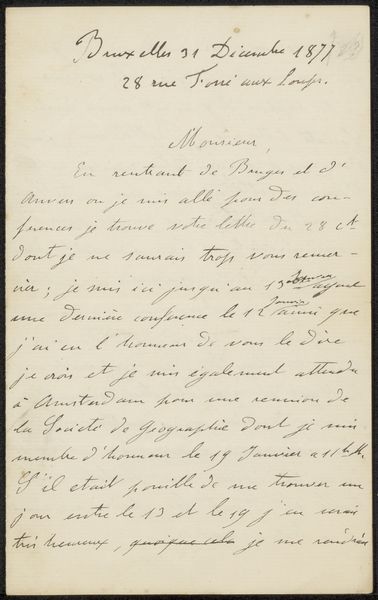 Bruxelles 31 Décembre 1877
28 rue Fossé aux Loups.
Monsieur,
En rentrant de Bruges et d'
Anvers ou je suis allé pour des con-
ferences je trouve votre lettre du 28 ct
dont je ne saurais trop vous remer-
cier; je suis ici jusqu'au 13 Janvier ayant
une dernière conference le 12 Janvier ainsi que
j'ai eu l'honneur de vous le dire
je crois et je suis également attendu
à Amsterdam pour une reunion de
la Societé de Geographie dont je suis
membre d'honneur le 19 Janvier a 11 h
S'il etait possible de me trouver un
jour entre le 13 et le 19 j'en serais
très heureux, quoique cela je me rendrai